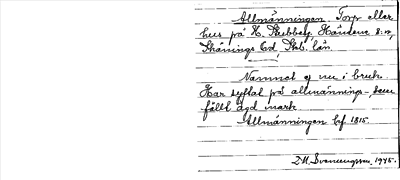 Allmänningen. Torp eller
hus på N. Stubberg, Händene s:n,
Skånings hd, Skb. län.
Namnet ej nu i bruk.
Har syftat på allmännings-, sam-
fällt ägd mark.
Allmänningen lf 1815.
D.M. Svenningsson, 1945.